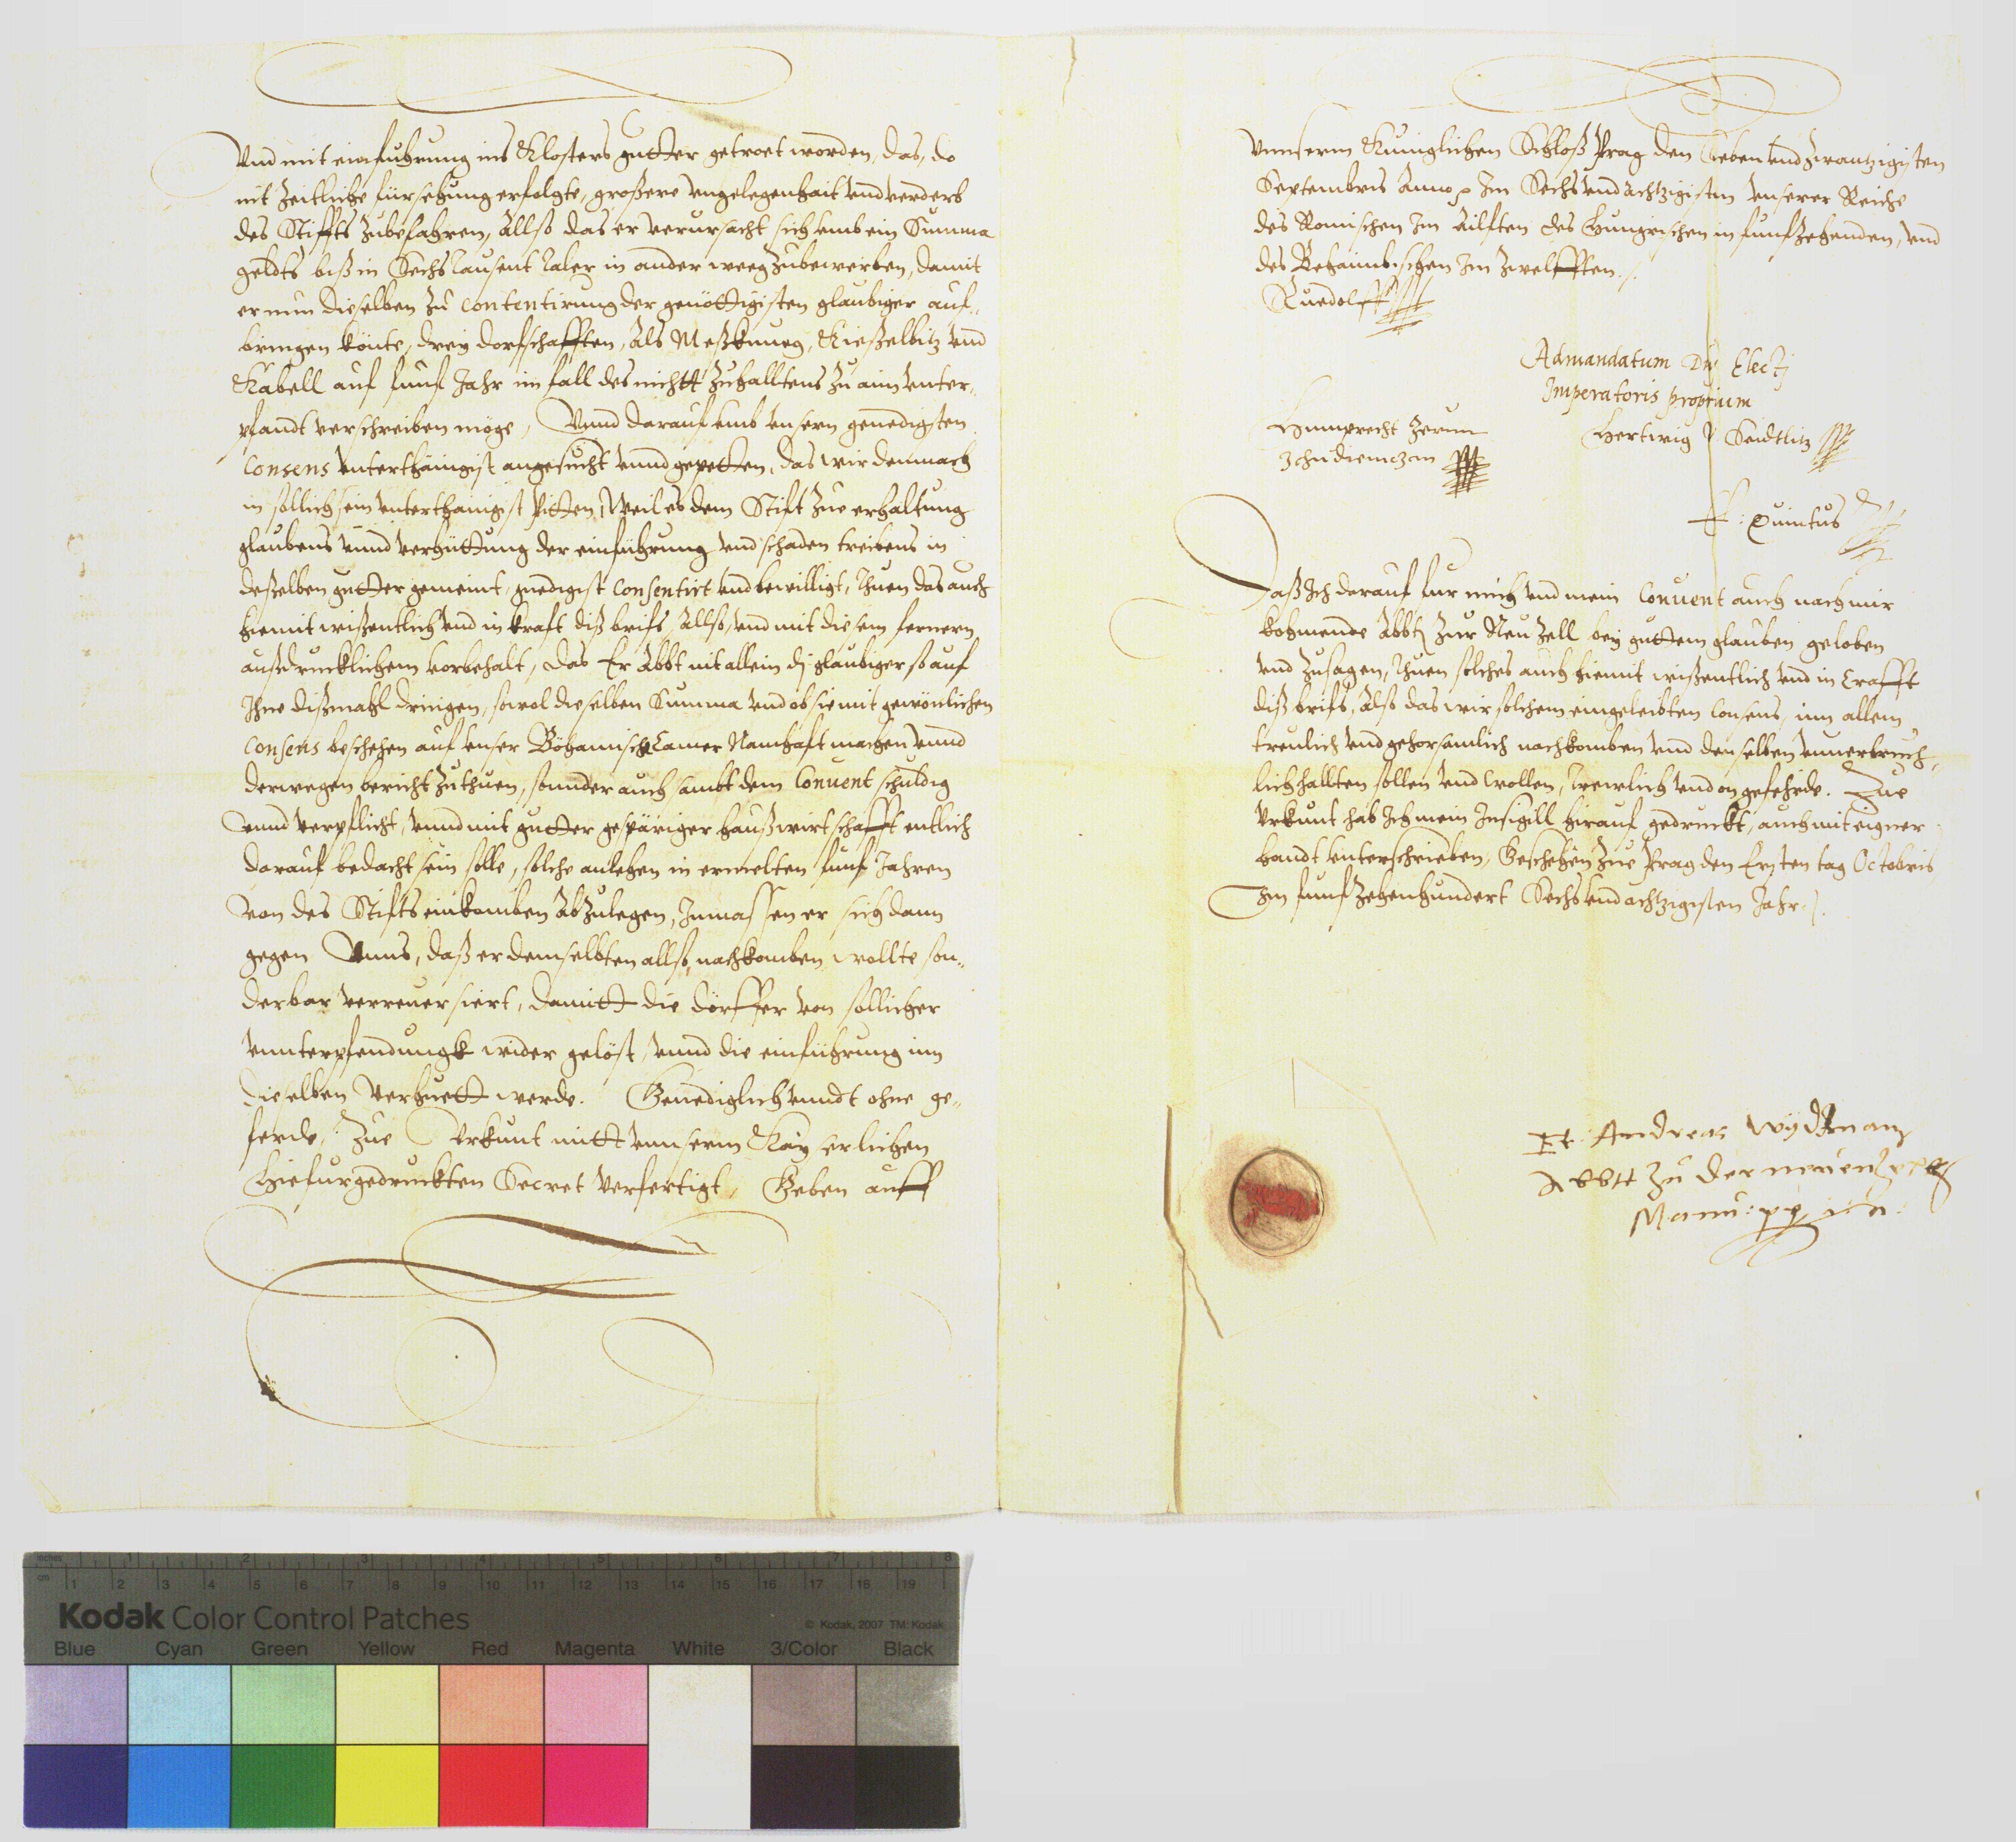 Vnd mit einfuhrung ins Closters gutter getroet worden, das, do
nit zeitliche fürsehung erfolgte, großere vngelegenhait vnd verderb
des Stiffts zubefahren, Allso das er verursacht sich vmb ein Summa
geldts biß in Sechs Tausent Taler in ander weeg zubewerben, damit
er nun dieselben zu contentirung der genöttigisten glaubiger auf-
bringen könte, drey dorfschafften, Als Meßknueg, Kießelbitz vnd
Kabell auf funf Jahr im fall des nichtt zuhalltens zu aim vnter-
pfandt verschreiben möge, Vnnd darauf vmb vnsern genedigsten
Consens vnterthänigist angesucht vnnd gepetten, das wir demnach
in sollich sein vnterthänigist pitten, Weil es dem Stift zue erhaltung
glaubens vnnd verhüttung der einführung vnd schaden treibens in
deßelben gütter gemeint, gnedigist Consentirt vnd bewilligt, Thuen das auch
hiemit wißentlich vnd in kraft diß brifs, Allso, vnd mit diesem fernern
außdrucklichem vorbehalt, das Er Abbt nit allein dj glaubiger so auf
Ihne dißmahl dringen, sowol dieselben Summa vnd ob sie mit gewönlichen
Consens beschehen auf vnser Böhamische Camer Namhaft machen vnnd
derwegen bericht zuthuen, sonnder auch sambt dem Conuent schuldig
vnnd verpflicht, vnnd mit gutter gespäriger haußwirtschafft entlich
darauf bedacht sein solle, solche anlehen in ermelten funf Jahren
von des Stifts einkomben Abzulegen, Inmassen er sich dann
gegen Vnns, daß er demselbten allso nachkomben wollte son-
derbar verreuersiert, damitt die dörffer von sollicher
vnnterpfendungk wider gelöst, vnnd die einführung inn
dieselben verhuett werde. Genediglich vnndt ohne ge-
ferde, Zue Vrkunt mitt vnnserm Kayserlichen
Hiefurgedruckten Secret verfertigt, Geben auff
Vnnserm Kuniglichen Schloß Prag den Sieben vnd zwantzigisten
Septembris Anno p Im Sechs vnd achtzigisten vnserer Reiche
des Romischen Im Ailften des Hungrischen in funfzehenden, vnd
des Behaimbischen Im zwelfften.
Ruedolff
Admandatum Dnj Electj
Imperatoris proprium
Humprecht Zernin
Hertwig Seidtlitz
z chudieniczen
F: Quintus
Daß Ich darauf fur mich vnd mein Conuent auch nach mir
kohmende Abbtj zur Neu Zell bey guttem glauben geloben
vnd zusagen, thuen solches auch hiemit wißentlich vnd in Crafft
diß brifs, Alß das wir solchem eingeleibten Consens, inn allem
treulich vnd gehorsamlich nachkomben vnd denselben vnuerbruch-
lich hallten sollen vnd wollen, trewlich vnd on gefehrde. Zue
Vrkunt hab Ich mein Insigill hirauf gedruckt, auch mit eigner
handt vnterschrieben, Geschehen zue Prag den Ersten tag Octobris
Im funfzehenhundert Sechs vnd achtzigisten Jahr.
Andreas Wydman
Abbtt zu der neuenzell
Manu: pp
Kodak Color Control Patches
© Kodak, 2007 TM: Kodak
Blue Cyan Green Yellow Red Magenta White 3/Color Black